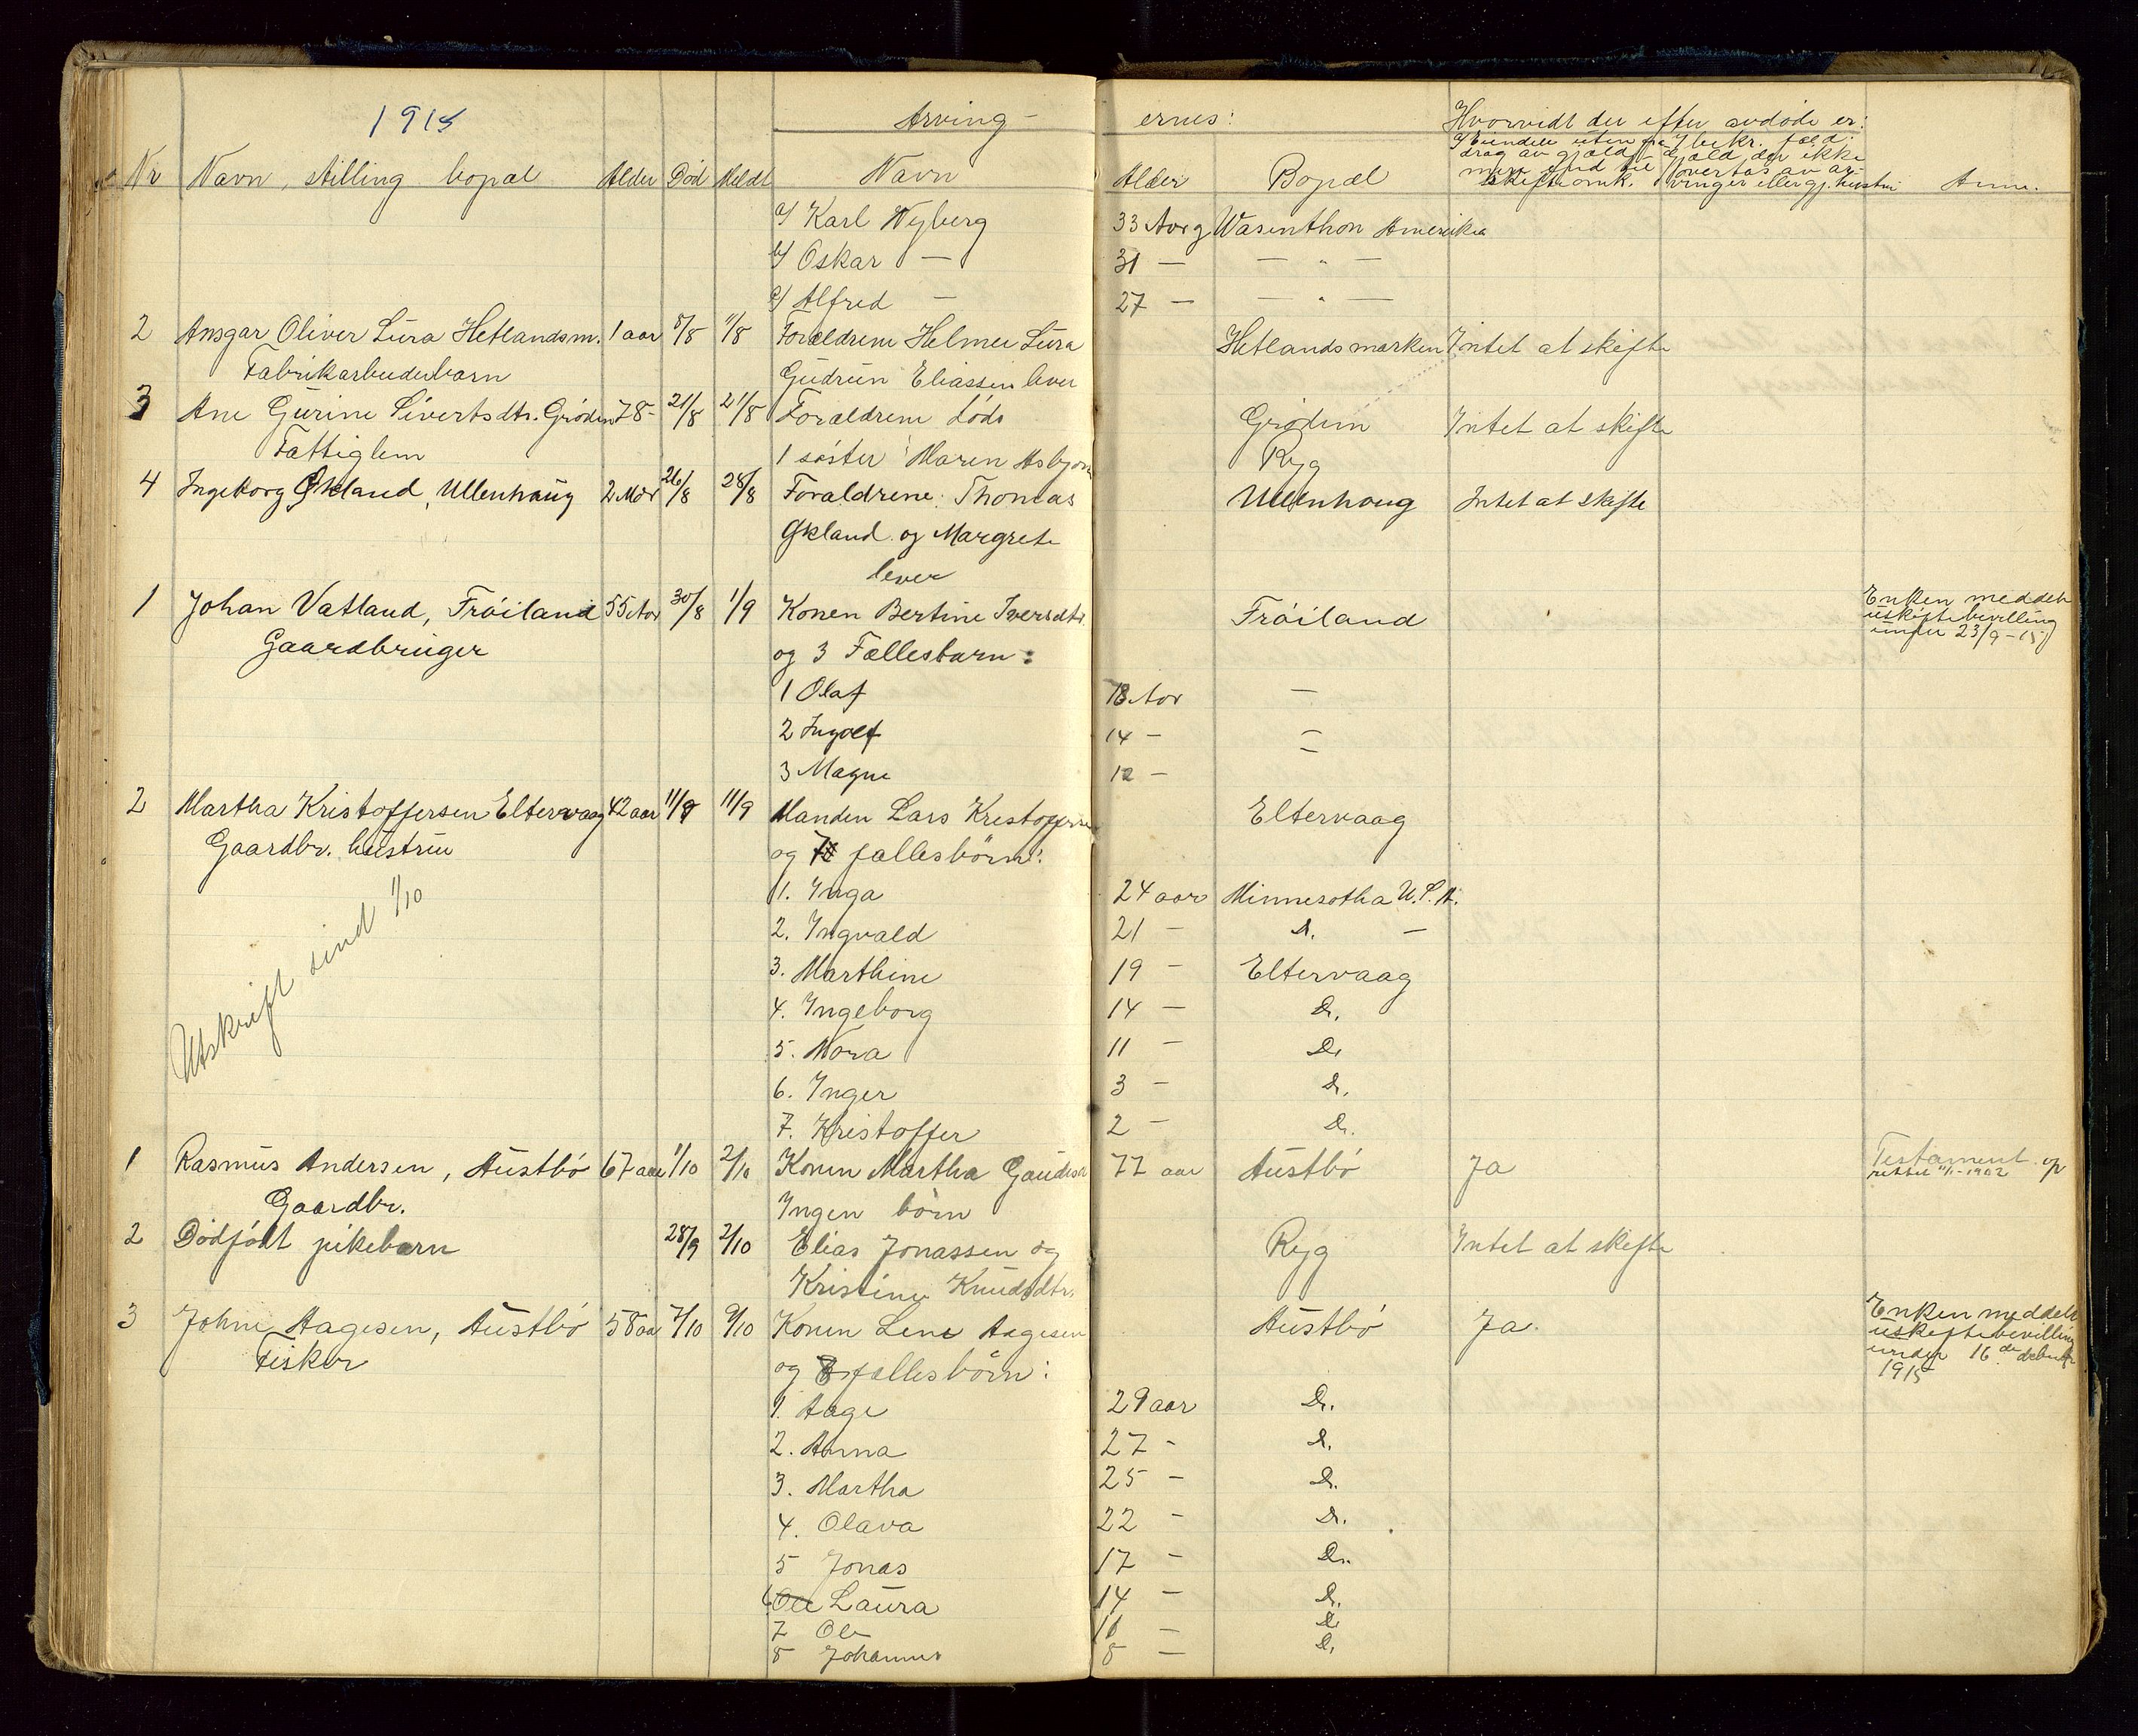 1915 Arving- ernes: Hvorvidt der efter avdøde er:
a/ Eiendele uten fra- b/ bekr. fæld.
drag av gjæld gjæld, der ikke
mere end til overtas av ar-
Nr Navn, stilling bopæl Alder Død Meldt Navn Alder Bopæl skifteomk. vinger eller gj. hustru Anm.
a/ Karl Nyberg 33 Aar g Wasinthon Amerika
b/ Oskar — 31 — — " —
c/ Alfred — 27 — — " —
2 Ansgar Oliver Lura Hetlandsm. 1 aar 8/8 9/8 Forældrene Helmer Lura Hetlandsmarken Intet at skifte
Fabrikarbeiderbarn Gudrun Eliassen lever
3 Ane Gurine Sivertsdtr. Grødem 78 - 21/8 21/8 Forældrene døde Grødem Intet at skifte
Fattiglem 1 søster Maren Asbjørn Ryg
4 Ingeborg Økland, Ullenhaug 2 Mdr 26/8 28/8 Forældrene: Thomas Ullenhoug Intet at skifte
Økland og Margrete
lever
1 Johan Vatland, Frøiland 55 Aar 30/8 1/9 Konen Bertine Iversdtr. Frøiland Enken meddelt
Gaardbruger og 3 Fællesbarn: uskiftebevilling
under 23/9-15
1 Olaf 18 Aar —
2 Ingolf 14 - —
3 Magne 12 - —
2 Martha Kristoffersen Eltervaag 42 aar 11/9 11/9 Manden Lars Kristoffersen Eltervaag
Gaardbr. hustru og 7 fællesbørn:
1. Inga 24 aar Minnesotha U.S.A.
2. Ingvald 21 - D. —
3. Marthine 19 - Eltervaag
4. Ingeborg 14 - D.
5. Nora 11 - D.
6. Inger 3 - D.
7. Kristoffer 2 - D.
Utskrift send 1/10
1 Rasmus Andersen, Austbø 67 aar 1/10 2/10 Konen Martha Gaudesen 77 aar Austbø Ja Testament op
Gaardbr. Ingen børn rettet 11/1-1902
2 Dødfødt pikebarn 28/9 2/10 Elias Jonassen og Ryg Intet at skifte
Kristine Knudsdtr.
3 Johne Aagesen, Austbø 58 aar 7/10 9/10 Konen Lene Aagesen Austbø Ja. Enken meddelt
Fisker og 8 fællesbørn: uskiftebevilling
under 16de debr
1915
1. Aage 29 aar D.
2. Anna 27 - D.
3. Martha 25 - D.
4. Olava 22 - D.
5 Jonas 17 - D.
6 Ole Laura 14 - D.
7 Ole 11 - D.
8 Johannes 8 - D.